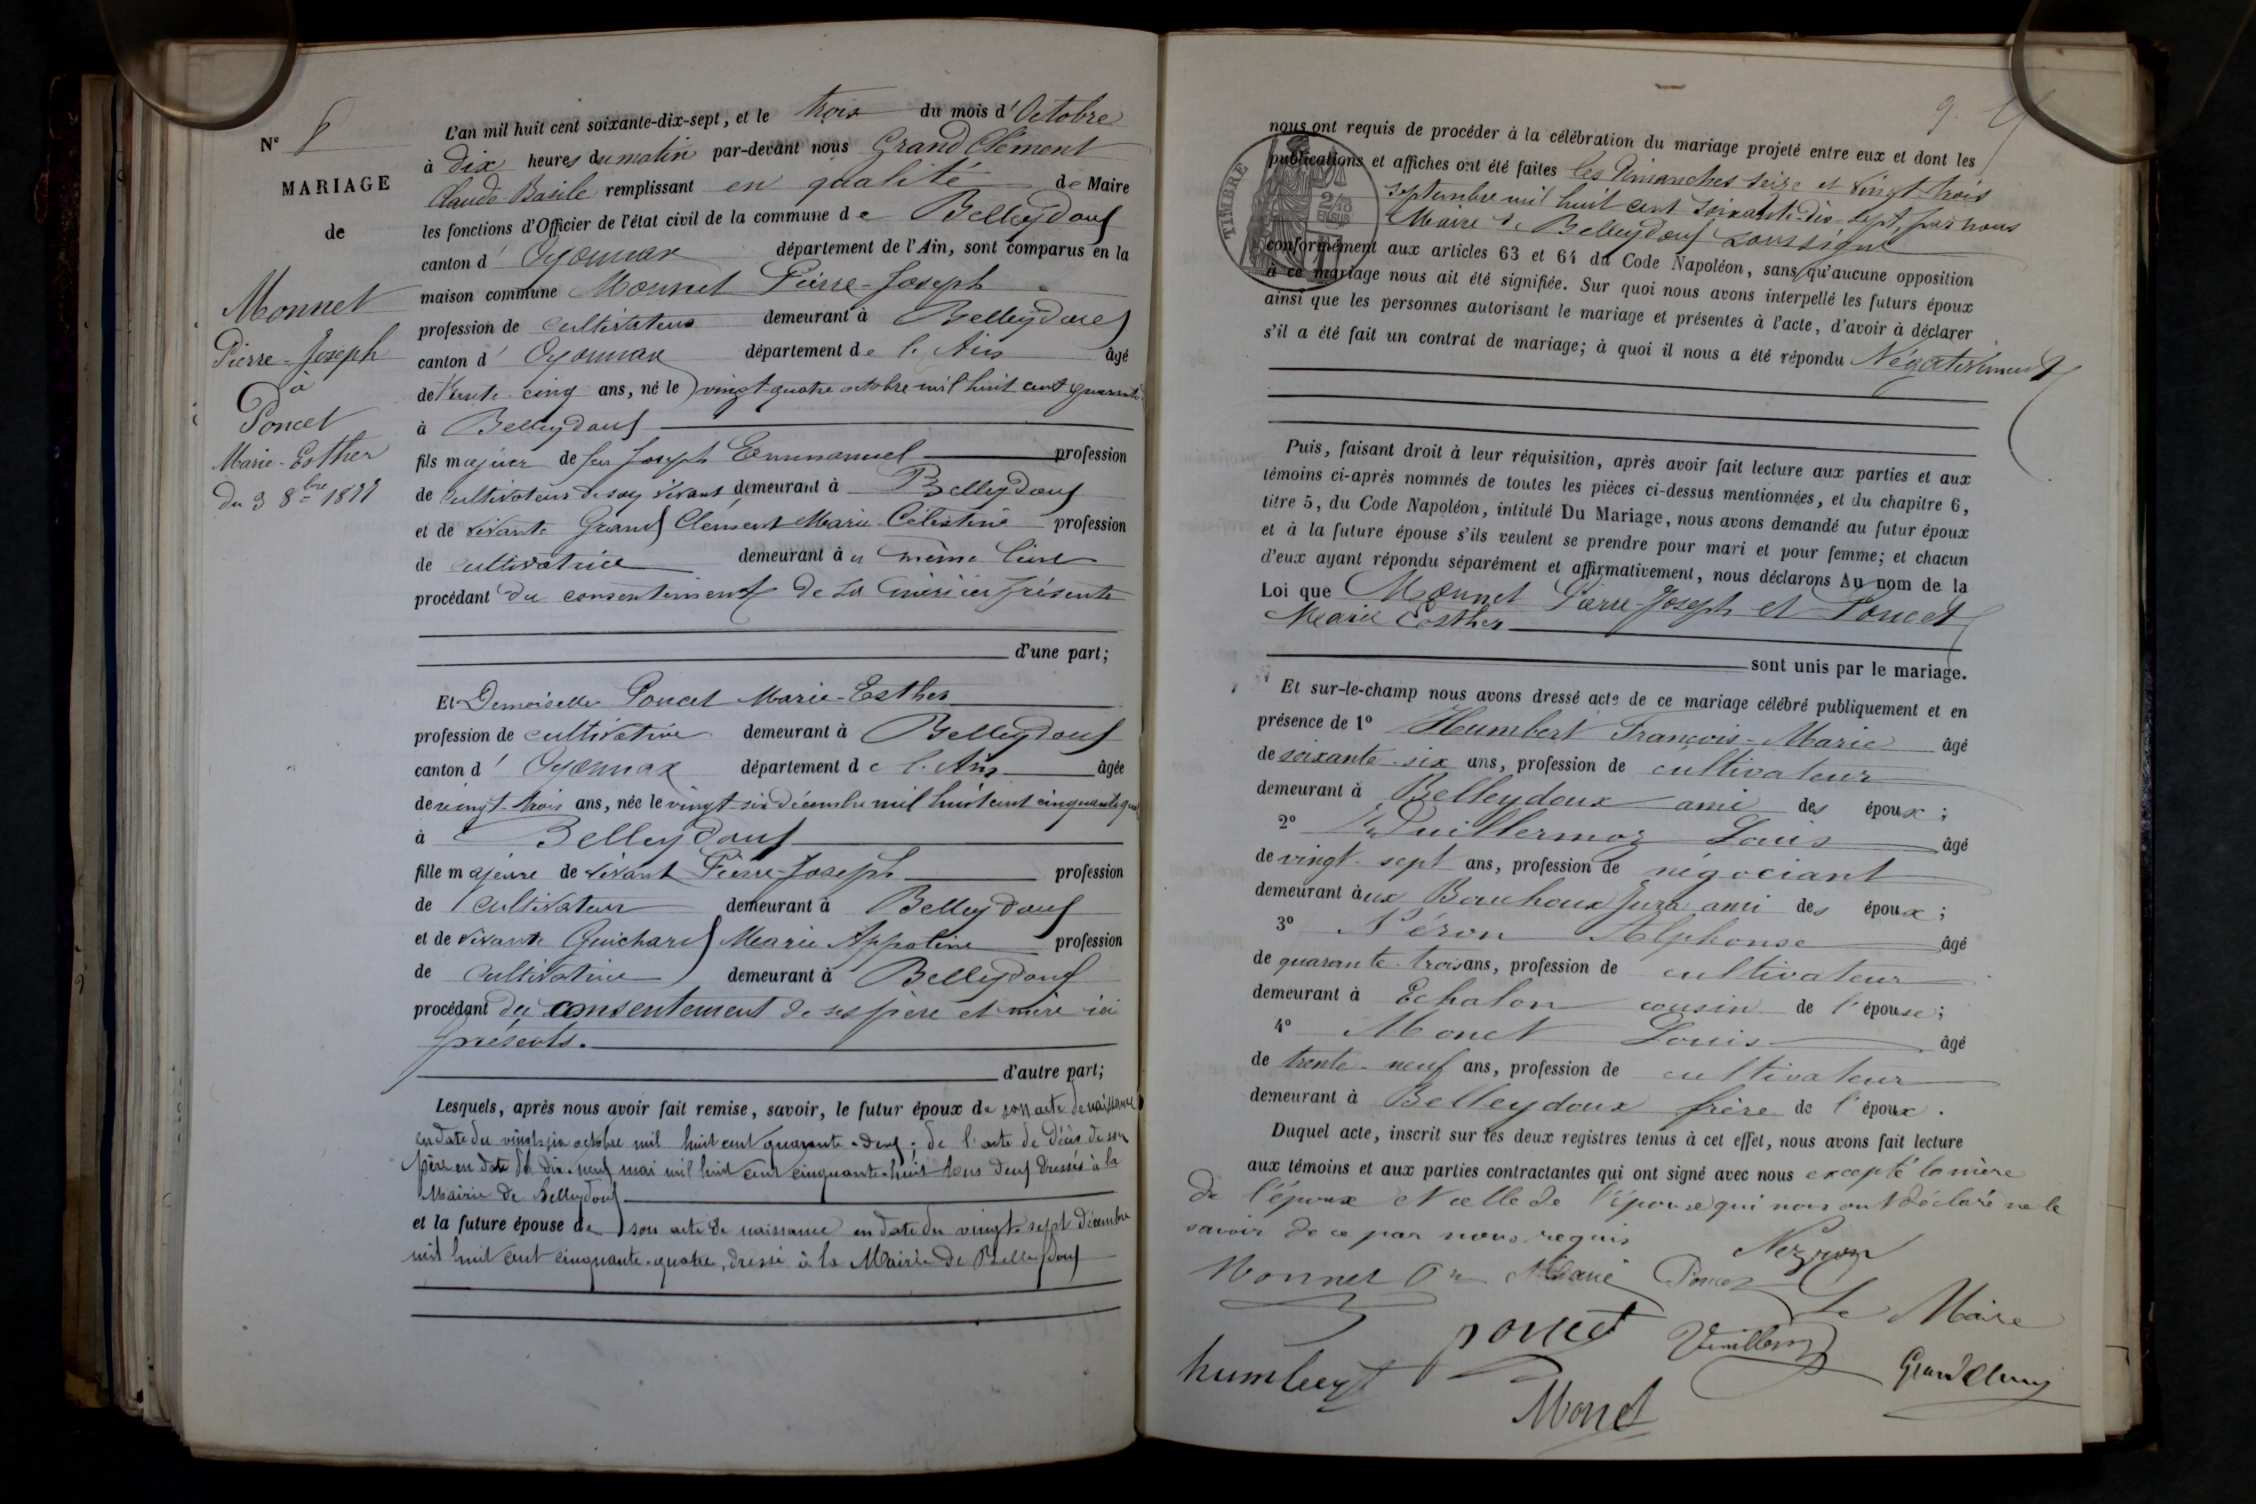 Nº
MARIAGE
de
Monnet
Pierre-Joseph
à
Poncet
Marie-Esther
du 3 8bre 1877
L'an mil huit cent soixante-dix-sept, et le trois du mois d'Octobre
à dix heures du matin par-devant nous Grand Clément
Claude Basile remplissant en qualité de Maire
les fonctions d'Officier de l'état civil de la commune de Belleydoux
canton d'Oyonnax département de l'Ain, sont comparus en la
maison commune Monnet Pierre-Joseph
profession de cultivateur demeurant à Belleydoux
canton d'Oyonnax département de l'Ain âgé
de trente-cinq ans, né le vingt-quatre octobre mil huit cent quarante
à Belleydoux
fils majeur de feu Joseph Emmanuel profession
de cultivateur de son vivant demeurant à Belleydoux
et de vivante Grand Clément Marie Célestine profession
de cultivatrice demeurant à même lieu
procédant du consentement de sa mère ici présente
d'une part;
Et Demoiselle Poncet Marie-Esther
profession de cultivatrice demeurant à Belleydoux
canton d'Oyonnax département de l'Ain âgée
de vingt-trois ans, née le vingt-six décembre mil huit cent cinquante
à Belleydoux
fille majeure de vivant Pierre-Joseph profession
de cultivateur demeurant à Belleydoux
et de vivante Guichard Marie Appoline profession
de cultivatrice demeurant à Belleydoux
procédant du consentement de ses père et mère ici
présents.
d'autre part;
Lesquels, après nous avoir fait remise, savoir, le futur époux de son acte de naissance
en date du vingt-six octobre mil huit cent quarante-deux; de l'acte de décès de son
père en date du dix-neuf mai mil huit cent cinquante-huit tous deux dressés à la
Mairie de Belleydoux
et la future épouse de son acte de naissance en date du vingt-sept décembre
mil huit cent cinquante-quatre, dressé à la Mairie de Belleydoux
9
nous ont requis de procéder à la célébration du mariage projeté entre eux et dont les
publications et affiches ont été faites les Dimanches seize et vingt-trois
septembre mil huit cent soixante-dix-sept, par nous
Maire de Belleydoux soussigné
TIMBRE
conformément aux articles 63 et 64 du Code Napoléon, sans qu'aucune opposition
à ce mariage nous ait été signifiée. Sur quoi nous avons interpellé les futurs époux
ainsi que les personnes autorisant le mariage et présentes à l'acte, d'avoir à déclarer
s'il a été fait un contrat de mariage; à quoi il nous a été répondu Négativement
Puis, faisant droit à leur réquisition, après avoir fait lecture aux parties et aux
témoins ci-après nommés de toutes les pièces ci-dessus mentionnées, et du chapitre 6,
titre 5, du Code Napoléon, intitulé Du Mariage, nous avons demandé au futur époux
et à la future épouse s'ils veulent se prendre pour mari et pour femme; et chacun
d'eux ayant répondu séparément et affirmativement, nous déclarons Au nom de la
Loi que Monnet Pierre-Joseph et Poncet
Marie Esther
sont unis par le mariage.
Et sur-le-champ nous avons dressé acte de ce mariage célébré publiquement et en
présence de 1º Humbert François-Marie âgé
de soixante-six ans, profession de cultivateur
demeurant à Belleydoux ami des époux;
2º Vuillermoz Louis âgé
de vingt-sept ans, profession de négociant
demeurant aux Bouchoux Jura ami des époux;
3º Néron Alphonse âgé
de quarante-trois ans, profession de cultivateur
demeurant à Echalon cousin de l'épouse;
4º Monet Louis âgé
de trente-neuf ans, profession de cultivateur
demeurant à Belleydoux frère de l'époux.
Duquel acte, inscrit sur les deux registres tenus à cet effet, nous avons fait lecture
aux témoins et aux parties contractantes qui ont signé avec nous excepté la mère
de l'époux et celle de l'épouse qui nous ont déclaré ne le
savoir de ce par nous requis
Monnet Marie Poncet
Le Maire
poncet Vuillermoz
humbert Grand Clement
Monet